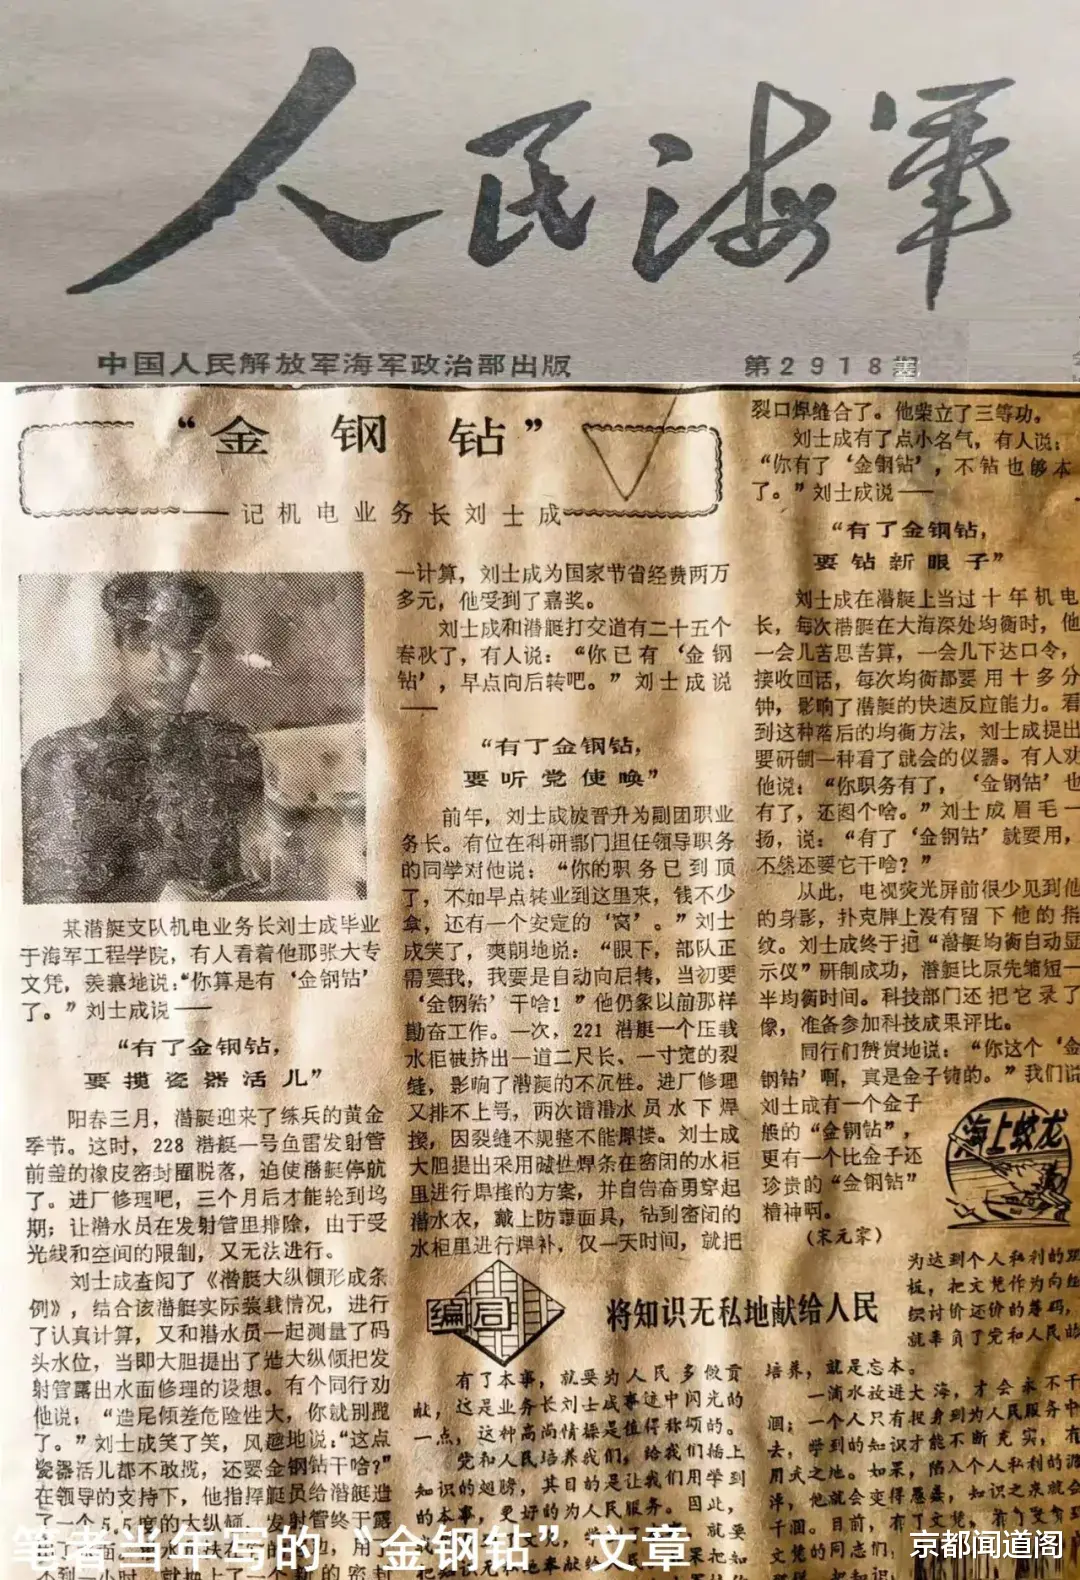 人民海军
中国人民解放军海军政治部出版
第2918期
“金钢钻”
——记机电业务长刘士成
某潜艇支队机电业务长刘士成毕业
于海军工程学院，有人看着他那张大专
文凭，羡慕地说：“你算是有‘金钢钻’
了。”刘士成说——
“有了金钢钻，
要揽瓷器活儿”
阳春三月，潜艇迎来了练兵的黄金
季节。这时，228潜艇一号鱼雷发射管
前盖的橡皮密封圈脱落，迫使潜艇停航
了。进厂修理吧，三个月后才能轮到坞
期；让潜水员在发射管里排除，由于受
光线和空间的限制，又无法进行。
刘士成查阅了《潜艇大纵倾形成条
例》，结合该潜艇实际装载情况，进行
了认真计算，又和潜水员一起测量了码
头水位，当即大胆提出了造大纵倾把发
射管露出水面修理的设想。有个同行劝
他说：“造尾倾差危险性大，你就别逞
了。”刘士成笑了笑，风趣地说：“这点
瓷器活儿都不敢揽，还要金钢钻干啥？”
在领导的支持下，他指挥艇员给潜艇造
了一个5.5度的大纵倾，发射管终于露
一计算，刘士成为国家节省经费两万
多元，他受到了嘉奖。
刘士成和潜艇打交道有二十五个
春秋了，有人说：“你已有‘金钢
钻’，早点向后转吧。”刘士成说
——
“有了金钢钻，
要听党使唤”
前年，刘士成被晋升为副团职业
务长。有位在科研部门担任领导职务
的同学对他说：“你的职务已到顶
了，不如早点转业到这里来，钱不少
拿，还有一个安定的‘窝’。”刘士
成笑了，爽朗地说：“眼下，部队正
需要我，我要是自动向后转，当初要
‘金钢钻’干啥！”他仍象以前那样
勤奋工作。一次，221潜艇一个压载
水柜被挤出一道二尺长、一寸宽的裂
缝，影响了潜艇的不沉性。进厂修理
又排不上号，两次请潜水员水下焊
接，因裂缝不规整不能焊接。刘士成
大胆提出采用碱性焊条在密闭的水柜
里进行焊接的方案，并自告奋勇穿起
潜水衣，戴上防毒面具，钻到密闭的
水柜里进行焊补，仅一天时间，就把
裂口焊缝合了。他荣立了三等功。
刘士成有了点小名气，有人说：
“你有了‘金钢钻’，不钻也够本
了。”刘士成说——
“有了金钢钻，
要钻新眼子”
刘士成在潜艇上当过十年机电
长，每次潜艇在大海深处均衡时，他
一会儿苦思苦算，一会儿下达口令，
接收回话，每次均衡都要用十多分
钟，影响了潜艇的快速反应能力。看
到这种落后的均衡方法，刘士成提出
要研制一种看了就会的仪器。有人劝
他说：“你职务有了，‘金钢钻’也
有了，还图个啥。”刘士成眉毛一
扬，说：“有了‘金钢钻’就要用，
不然还要它干啥？”
从此，电视荧光屏前很少见到他
的身影，扑克牌上没有留下他的指
纹。刘士成终于把“潜艇均衡自动显
示仪”研制成功，潜艇比原先缩短一
半均衡时间。科技部门还把它录了
像，准备参加科技成果评比。
同行们赞赏地说：“你这个‘金
钢钻’啊，真是金子铸的。”我们说
刘士成有一个金子
般的“金钢钻”，
更有一个比金子还
珍贵的“金钢钻”
精神啊。
（宋元家）
海上蛟龙
编后
将知识无私地献给人民
有了本事，就要为人民多做贡
献，这是业务长刘士成事迹中闪光的
一点，这种高尚情操是值得称颂的。
党和人民培养我们，给我们插上
知识的翅膀，其目的是让我们用学到
的本事，更好的为人民服务。因此，
为达到个人私利的
板，把文凭作为向组
织讨价还价的筹码，
就辜负了党和人民的
培养，就是忘本。
一滴水放进大海，才会永不干
涸；一个人只有投身到为人民服务中
去，学到的知识才能不断充实，有
用武之地。如果，陷入个人私利的
，他就会变得愚蠢，知识之泉就会
干涸。目前，有了文凭，
文凭的同志们，
笔者当年写的“金钢钻”文章
京都闻道阁